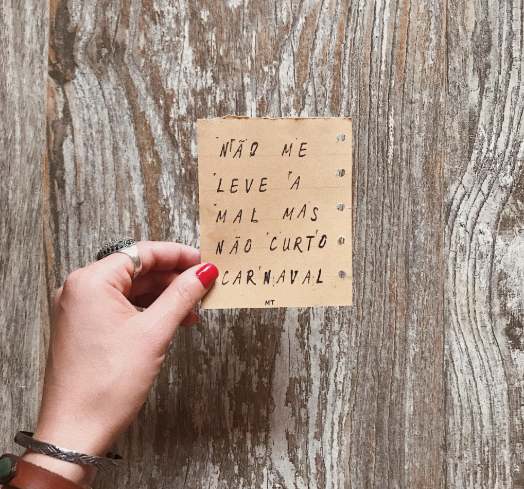 NÃO ME
LEVE A
MAL MAS
NÃO CURTO
CARNAVAL
MT